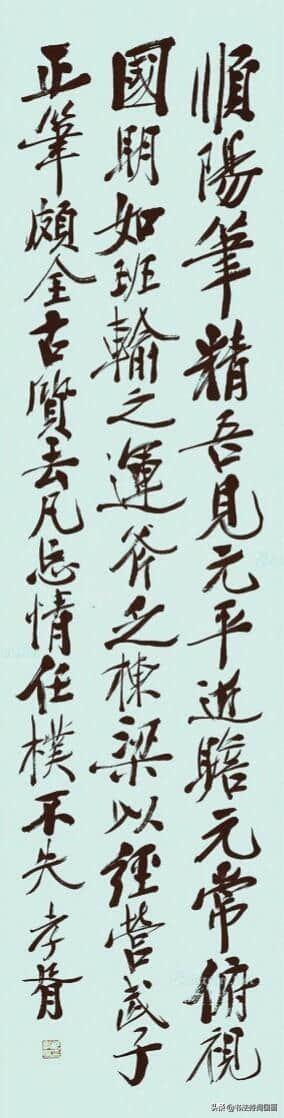 順陽筆精吾見元平逝瞻元常俯視
國明如班輸之運斧乏棟梁以經營武子
正筆頗全古質去凡忘情任樸不失孝胥
头条 @书法诗词国画